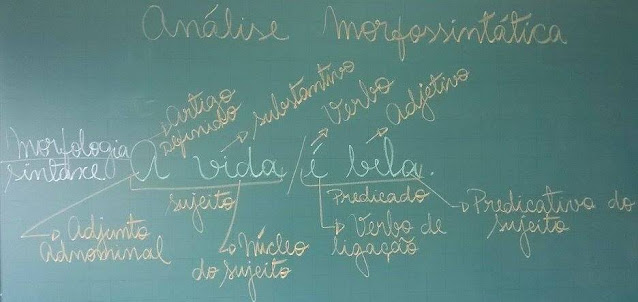 Análise Morfossintática
Artigo
definido
substantivo
Verbo
Adjetivo
Morfologia
sintaxe
A vida / é bela.
sujeito
Predicado
Adjunto
Adnominal
Núcleo
do sujeito
Verbo de
ligação
Predicativo do
sujeito